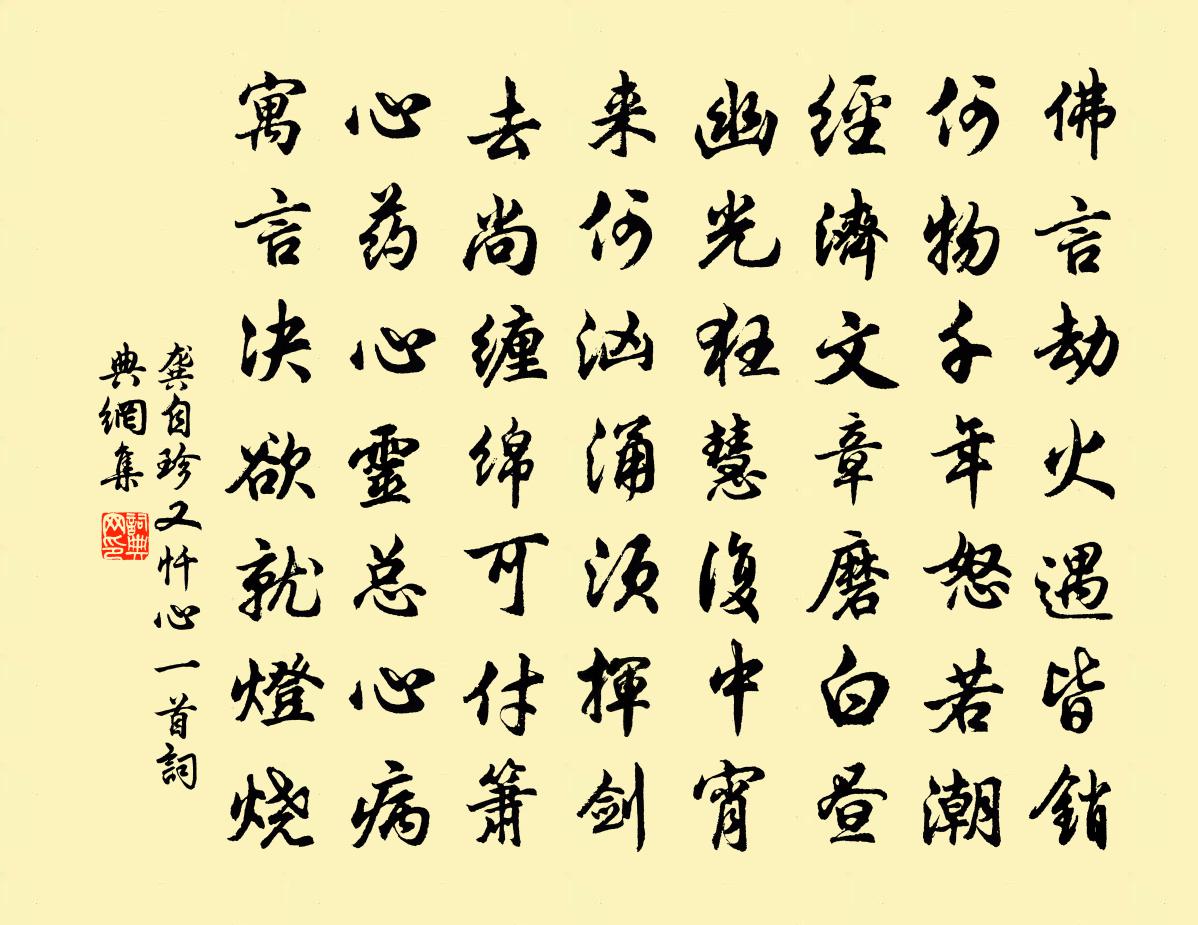 佛言劫火遇皆銷
何物千年怒若潮
經濟文章磨白晝
幽光狂慧復中宵
来何汹涌须揮劍
去尚缠绵可付簫
心药心靈总心病
寓言决欲就燈烧
龚自珍又忏心一首詞
典網集
詞典
网印